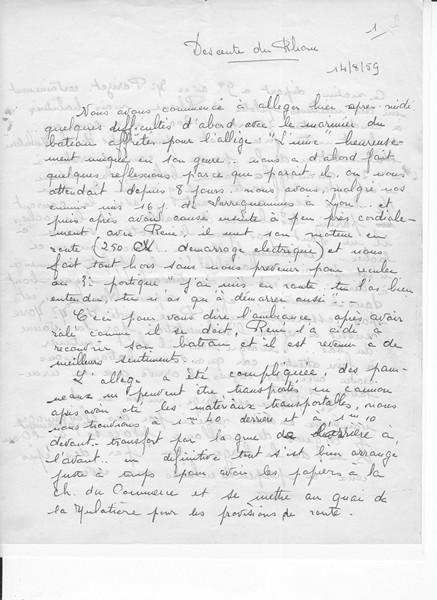 1
Descente du Rhône
14/8/59
Nous avons commencé à alleger hier après-midi
quelques difficultés d'abord avec le marinier du
bateau affrétés pour l'allège "L'unic" heureuse-
ment unique en son genre.. nous a d'abord fait
quelques reflexions parce que parait-il, on vous
attendait depuis 8 jours. nous avons malgré nos
ennuis mis 16 j. de Sarreguemines à Lyon.. et
puis après avoir causé ensuite à peu près cordiale-
ment avec René, il met son moteur en
route (250 CV.. demarrage electrique) et nous
fait tout hors sans nous prevenir pour reculer
au portique "j'ai mis en route tu l'as bien
entendu, tu n'as qu'à démarrer aussi"..
Ceci pour vous dire l'ambiance, après avoir
ralé comme il se doit, René l'a aidé à
recouvrir son bateau et il est revenu à de
meilleurs sentiments.
L'allège a été compliquée, des pan-
neaux ne peuvent être transportés en camion
après avoir oté les matériaux transportables, nous
nous trouvions à 1m40 derrière et à 1m10
devant. transfert par la grue de derrière à
l'avant. en definitive tout s'est bien arrangé
juste à temps pour avoir les papiers à la
Ch. du Commerce et se mettre au quai de
la Mulatière pour les provisions de route.